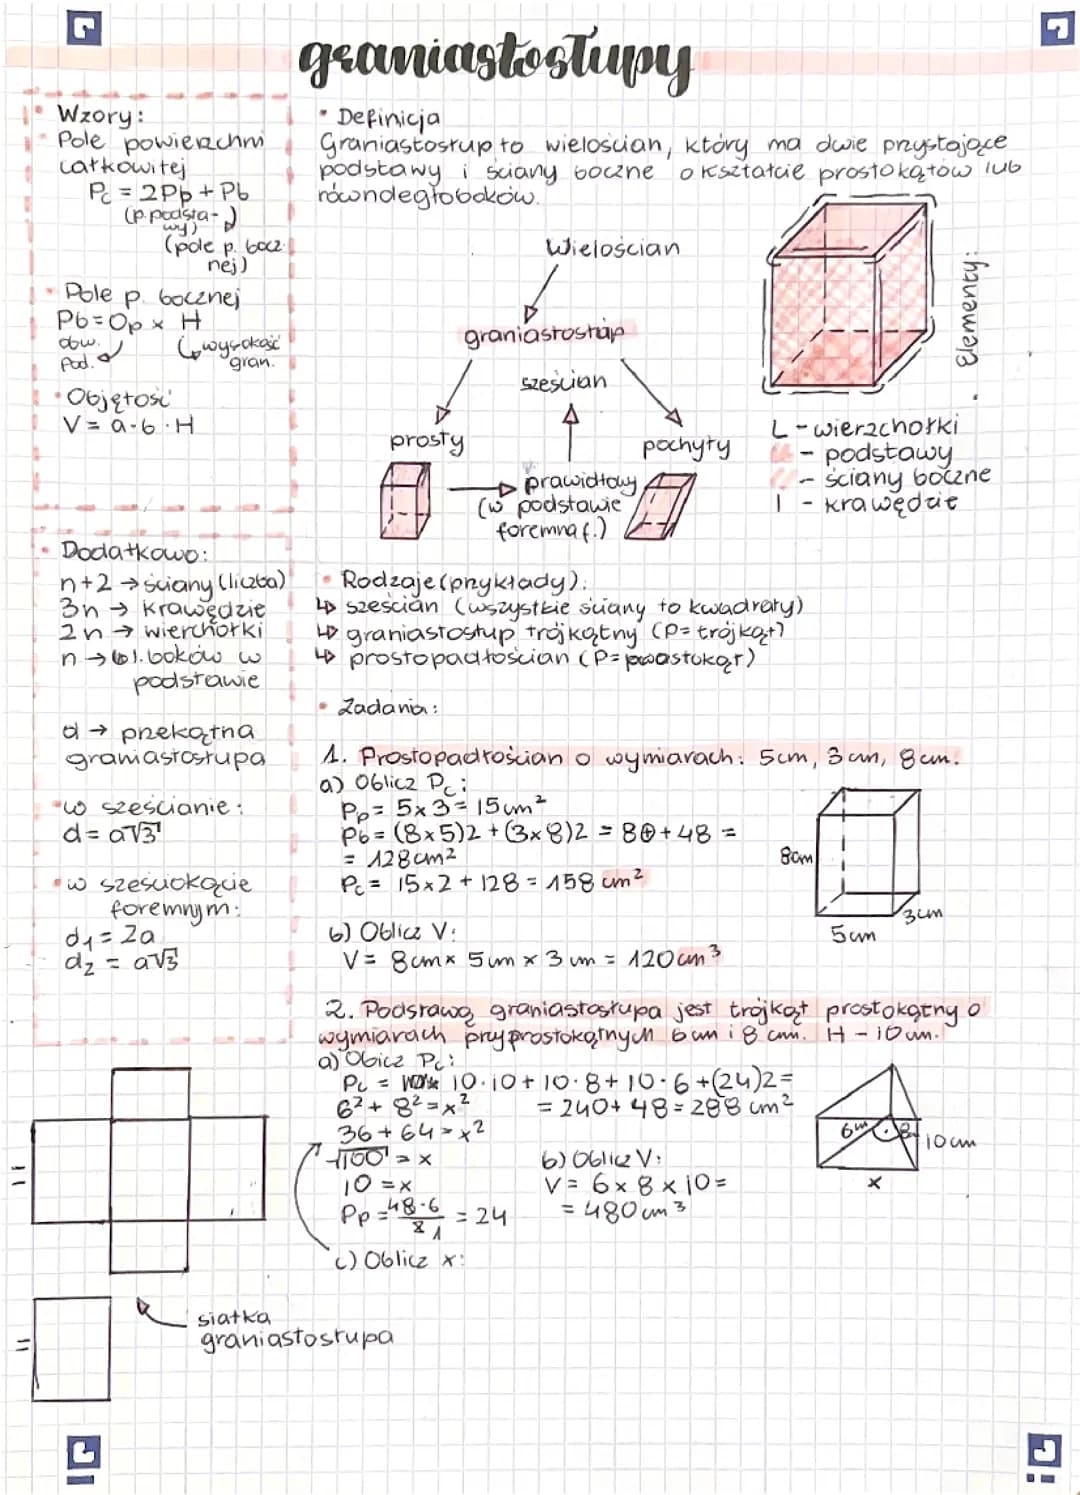 graniastosłupy
Wzory:
Pole powierzchni
całkowitej
Pc = 2Pp + Pb
(p. podsta-
wy)
(pole p. bocz
nej)
Pole p. bocznej
Pb = Op x H
obw.
pod.
wysokość
gran.
Objętość
V = a·b·H
Dodatkowo:
n+2 → ściany (liczba)
3n → krawędzie
2n → wierchołki
n → l. boków w
podstawie
d → przekątna
graniastosłupa
w sześcianie:
d = a√3
w sześciokącie
foremnym:
d₁ = 2a
d₂ = a√3
Definicja
Graniastosłup to wielościan, który ma dwie przystające
podstawy i ściany boczne o kształcie prostokątów lub
równoległoboków.
Wielościan
graniastosłup
sześcian
prosty
pochyły
prawidłowy
(w podstawie
foremna f.)
Elementy:
L - wierzchołki
- podstawy
- ściany boczne
I - krawędzie
Rodzaje (przykłady):
↳ sześcian (wszystkie ściany to kwadraty)
↳ graniastosłup trójkątny (P= trójkąt)
↳ prostopadłościan (P= prostokąt)
Zadania:
1. Prostopadłościan o wymiarach: 5cm, 3cm, 8cm.
a) Oblicz Pc:
Pp = 5x3 = 15cm²
Pb = (8x5)2 + (3x8)2 = 80 + 48 =
= 128cm²
Pc = 15x2 + 128 = 158 cm²
8cm
3cm
5cm
b) Oblicz V:
V = 8cm x 5cm x 3cm = 120cm³
2. Podstawą graniastosłupa jest trójkąt prostokątny o
wymiarach przyprostokątnych 6cm i 8cm. H - 10cm.
a) Obicz Pc:
Pc = 10·10 + 10·8 + 10·6 + (24)2 =
= 240 + 48 = 288 cm²
6² + 8² = x²
36 + 64 = x²
√100 = x
10 = x
Pp = 48·6/8 1 = 24
c) Oblicz x:
b) Oblicz V:
V = 6 x 8 x 10 =
= 480cm³
10cm
x
siatka
graniastosłupa